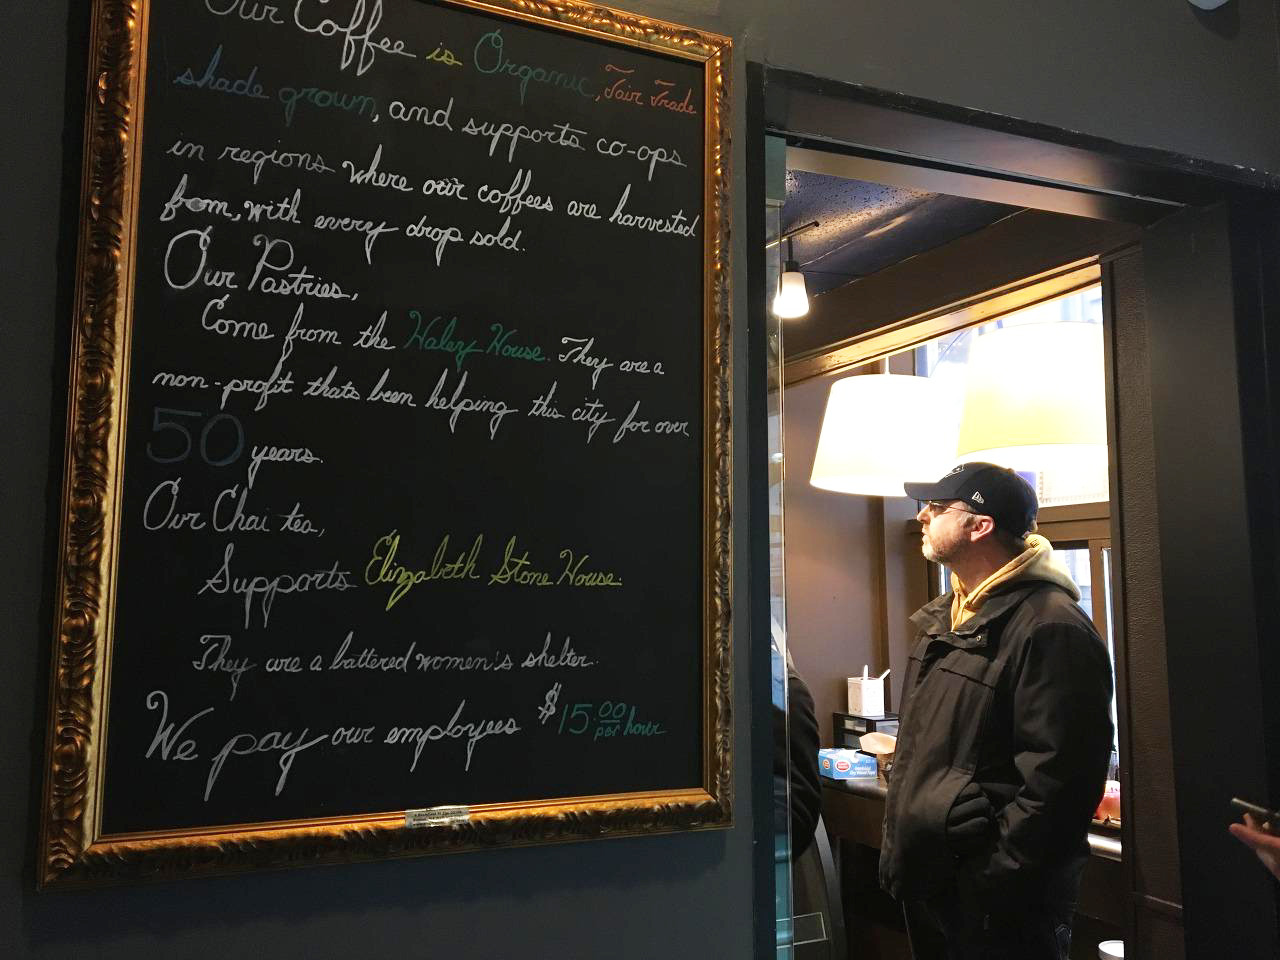 Our Coffee is Organic, Fair Trade
shade grown, and supports co-ops
in regions where our coffees are harvested
from, with every drop sold.
Our Pastries,
Come from the Haley House. They are a
non-profit thats been helping this city for over
50 years.
Our Chai tea,
Supports Elizabeth Stone House.
They are a battered women's shelter.
We pay our employees $15.00 per hour